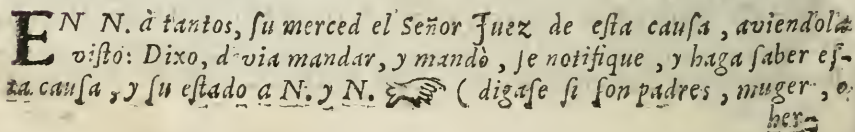 EN N. à tantos, ſu merced el Señor Juez de eſta cauſa, aviendola
viſto: Dixo, d via mandar, y mandò, ſe notifique, y haga ſaber eſ-
ta cauſa, y ſu eſtado a N. y N. ☞ ( digaſe ſi ſon padres, muger, o
her-